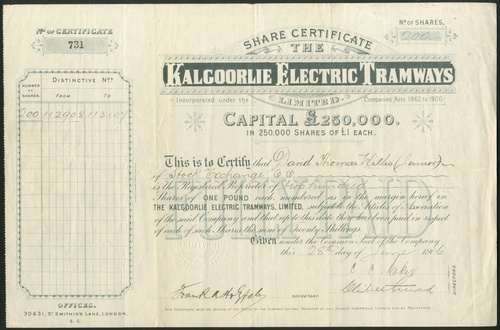 Nº OF CERTIFICATE
731
DISTINCTIVE Nºˢ
NUMBER OF SHARES.
FROM
TO
200
112908
113107
OFFICES.
30A31, Sᵗ SWITHIN'S LANE, LONDON.
E.C.
Nº OF SHARES,
200
SHARE CERTIFICATE
THE
KALGOORLIE ELECTRIC TRAMWAYS
Incorporated under the
LIMITED.
Companies Acts 1862 to 1900.
CAPITAL £250,000.
IN 250,000 SHARES OF £1 EACH.
This is to Certify that David Thomas (Junior)
of Stock Exchange E.C.
is the Registered Proprietor of Two hundred
Shares of ONE POUND each, numbered as in the margin hereof in
THE KALGOORLIE ELECTRIC TRAMWAYS, LIMITED, subject to the Articles of Association
of the said Company and that up to this date there has been paid in respect
of each of such Shares the sum of Twenty Shillings.
FULLY PAID
Given under the Common Seal of the Company
this 28th day of June 1906
DIRECTORS
SECRETARY
THIS CERTIFICATE MUST BE LODGED AT THE OFFICE OF THE COMPANY BEFORE TRANSFER OF ANY SHARES COMPRISED THEREIN CAN BE REGISTERED.